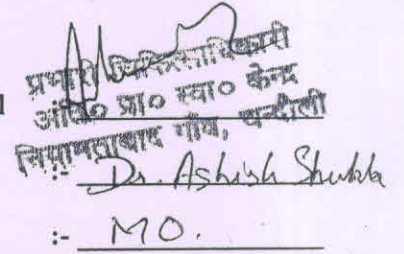 प्रभारी चिकित्साधिकारी
अति० प्रा० स्वा० केन्द्र
गाँव, चन्दौली
:- Dr. Ashish Shukla
:- MO.